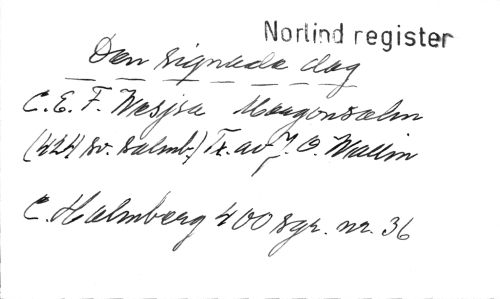 Norlind register
Den signade dag
C. E. F. Weyse Morgonsalm
(424 sv. psalmb.) Tx. av J. O. Wallin
C. Holmberg 400 sgr. nr. 36